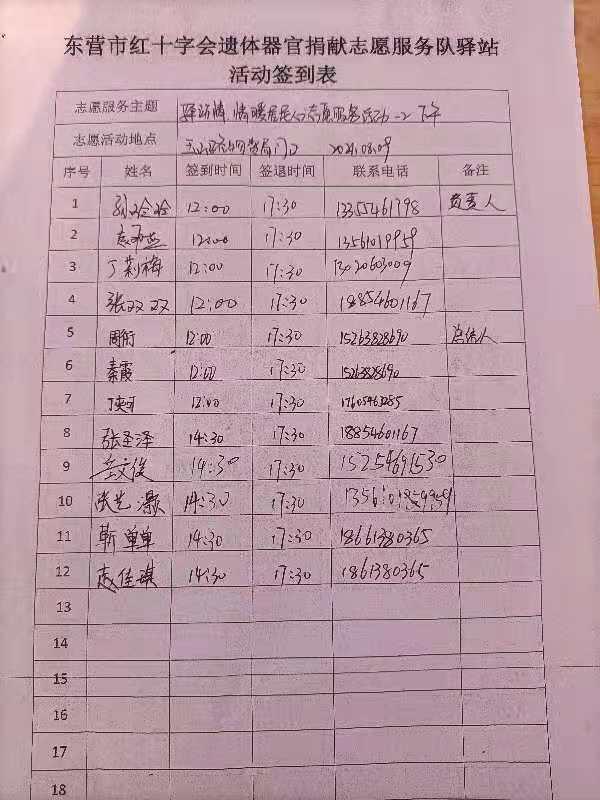 东营市红十字会遗体器官捐献志愿服务队驿站
活动签到表
志愿服务主题 驿站情,情暖居民心志愿服务活动-2 下午
志愿活动地点 2024.08.09
序号 姓名 签到时间 签退时间 联系电话 备注
1 12:00 17:30 13355461798 负责人
2 12:00 17:30 13561019959
3 丁莉梅 12:00 17:30 13020603009
4 张双双 12:00 17:30 18854601167
5 周衍 12:00 17:30 15263828690
6 秦霞 12:00 17:30 15263828690
7 12:00 17:30
8 张圣泽 14:30 17:30 18854601167
9 14:30 17:30 15254691530
10 14:30 17:30
11 靳单单 14:30 17:30 18661380365
12 14:30 17:30 1861380365
13
14
15
16
17
18